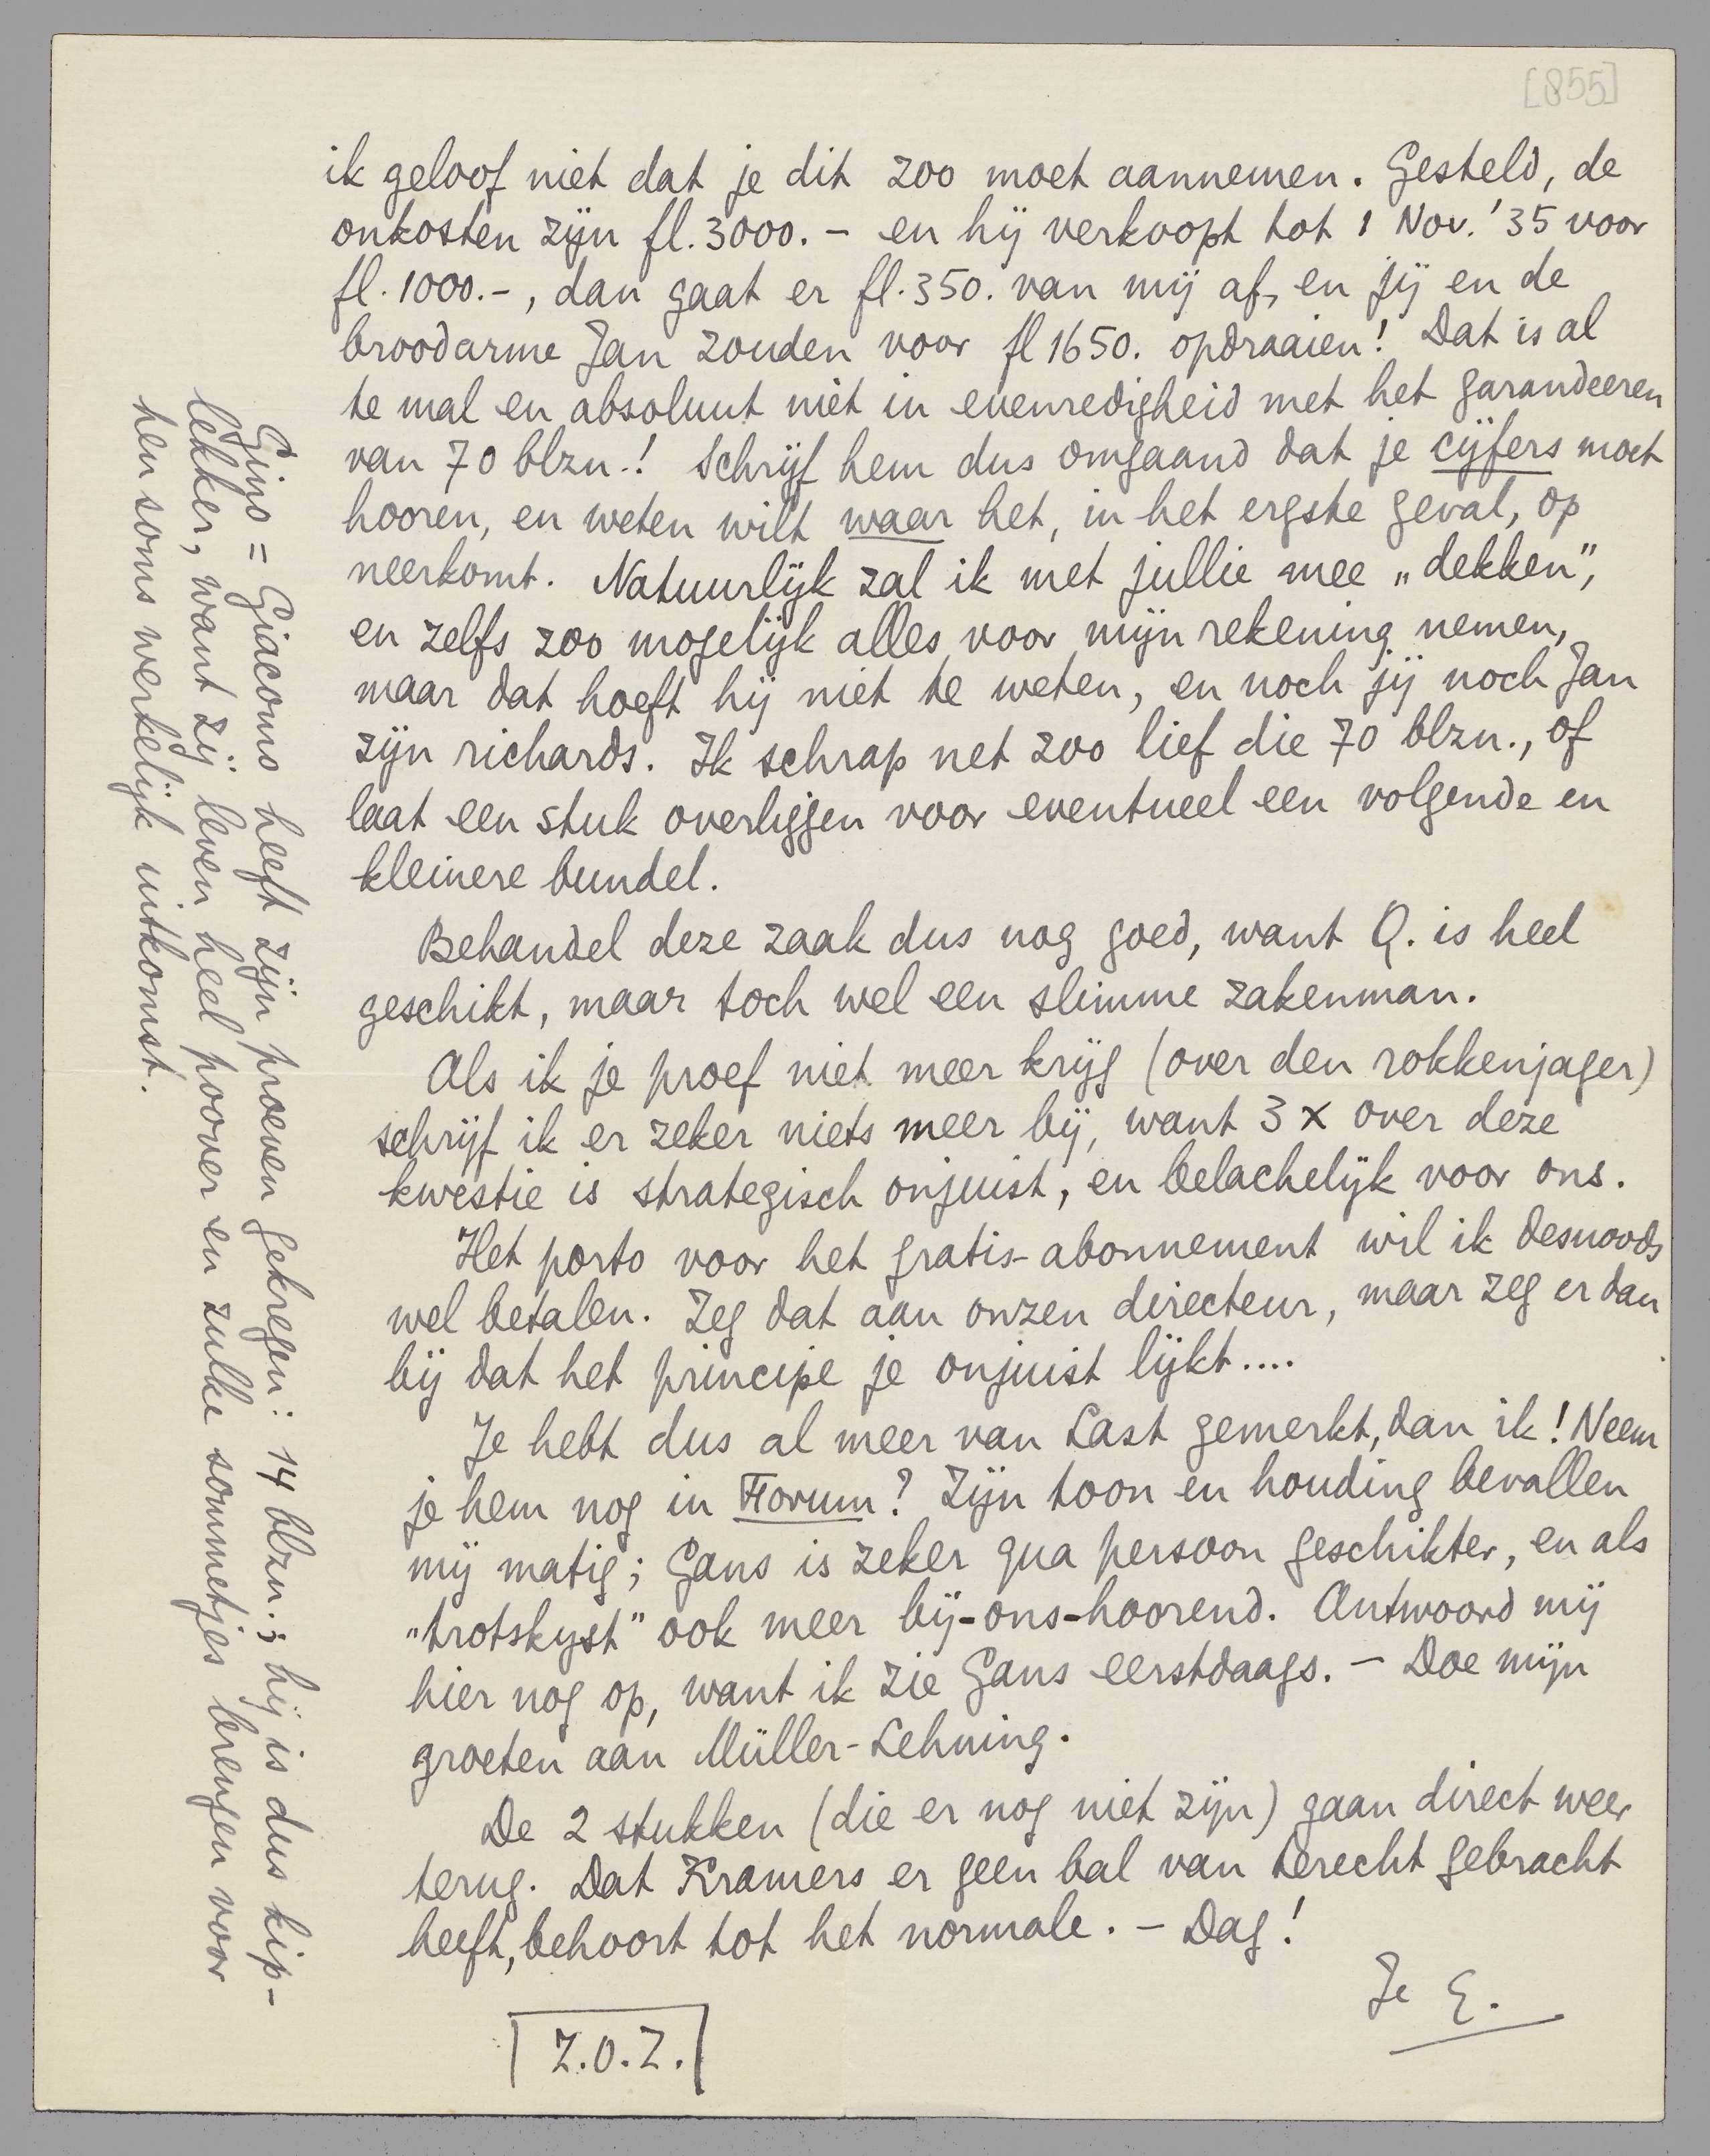 [855]
ik geloof niet dat je dit zoo moet aannemen. Gesteld, de
onkosten zijn fl. 3000.– en hij verkoopt tot 1 Nov. '35 voor
fl. 1000.–, dan gaat er fl. 350. van mij af, en jij en de
broodarme Jan zouden voor fl 1650. opdraaien! Dat is al
te mal en absoluut niet in evenredigheid met het garandeeren
van 70 blzn.! Schrijf hem dus omgaand dat je cijfers moet
hooren, en weten wilt waar het, in het ergste geval, op
neerkomt. Natuurlijk zal ik met jullie mee „dekken”,
en zelfs zoo mogelijk alles voor mijn rekening nemen,
maar dat hoeft hij niet te weten, en noch jij noch Jan
zijn richards. Ik schrap net zoo lief die 70 blzn., of
laat een stuk overliggen voor eventueel een volgende en
kleinere bundel.
Behandel deze zaak dus nog goed, want Q. is heel
geschikt, maar toch wel een slimme zakenman.
Als ik je proef niet meer krijg (over den rokkenjager)
schrijf ik er zeker niets meer bij, want 3 x over deze
kwestie is strategisch onjuist, en belachelijk voor ons.
Het porto voor het gratis-abonnement wil ik desnoods
wel betalen. Zeg dat aan onzen directeur, maar zeg er dan
bij dat het principe je onjuist lijkt....
Je hebt dus al meer van Last gemerkt, dan ik! Neem
je hem nog in Forum? Zijn toon en houding bevallen
mij matig; Gans is zeker qua persoon geschikter, en als
„trotskyst” ook meer bij-ons-hoorend. Antwoord mij
hier nog op, want ik zie Gans eerstdaags. – Doe mijn
groeten aan Müller-Lehning.
De 2 stukken (die er nog niet zijn) gaan direct weer
terug. Dat Kramers er geen bal van terecht gebracht
heeft, behoort tot het normale. – Dag!
Je E.
Z.O.Z.
Gino = Giacomo heeft zijn proeven gekregen: 14 blzn.; hij is dus kip-
lekker, want zij leven heel poover en zulke sommetjes brengen voor
hen soms werkelijk uitkomst.